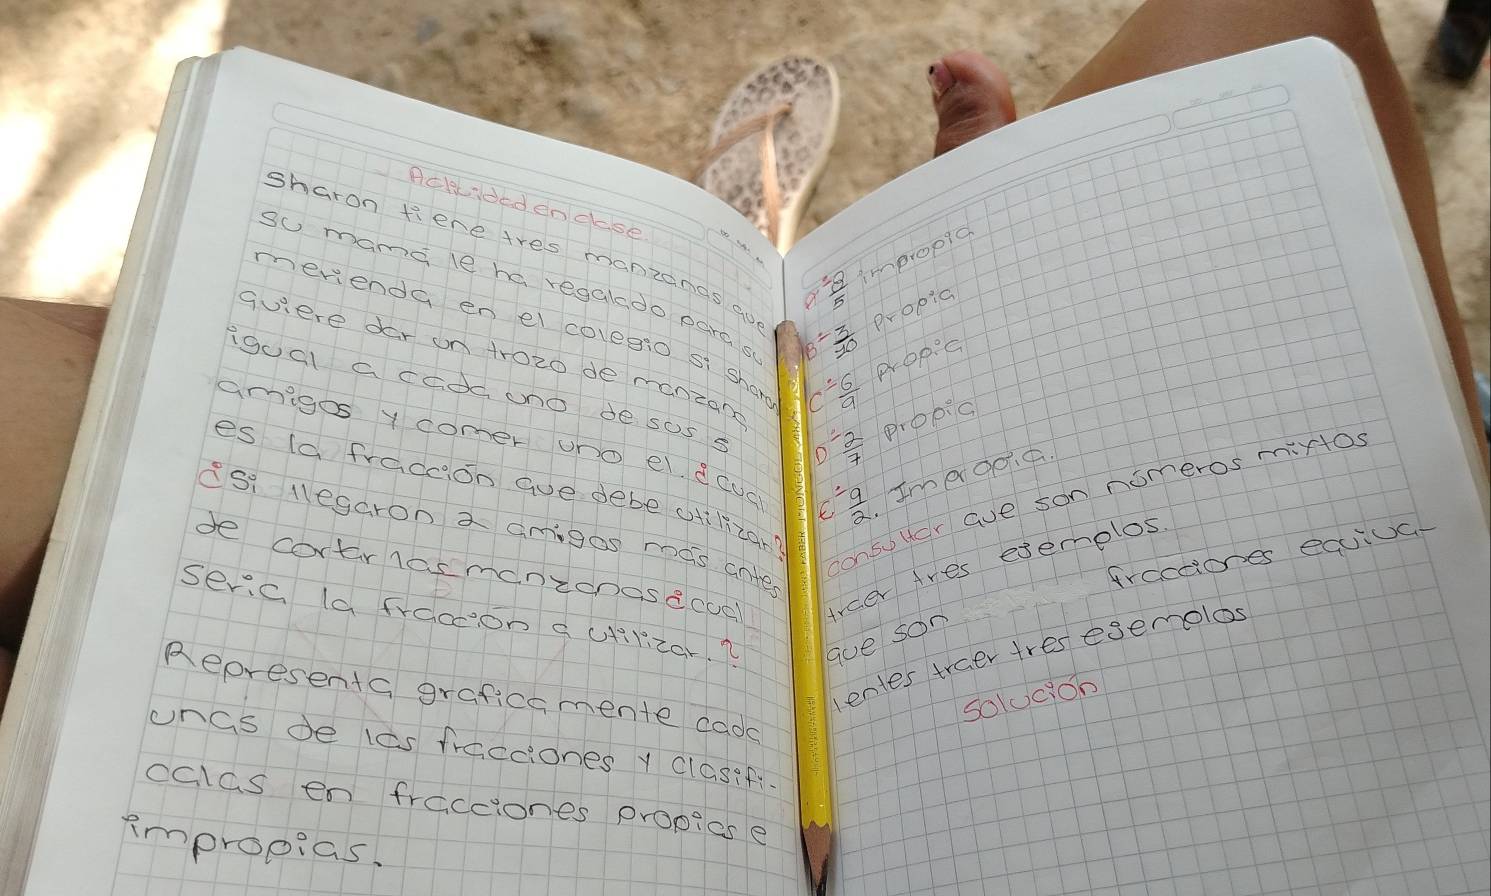 Actividad en clase.
Sharon tiene tres manzanas que
su mamá le ha regalado para su
merienda en el colegio si Sharon
quiere dar un trozo de manzana
igual a cada uno de sus 5
amigos y comer uno el. ¿cual
es la fracción que debe utilizar?
¿si llegaron 2 amigos más antes
de cortar las manzanas ¿cual
seria la fracción a utilizar.?
Representa graficamente cada
unas de las fracciones y clasifi-
calas en fracciones propias e
impropias.
5 impropia
B ÷ 3/10 propia
C ÷ 6/9 propia
D ÷ 2/7 propia
E ÷ 9/2. Impropia.
consultar que son números mixtos
traer tres ejemplos.
que son fracciones equiva-
lentes traer tres ejemplos
solución
FABER MONGOL